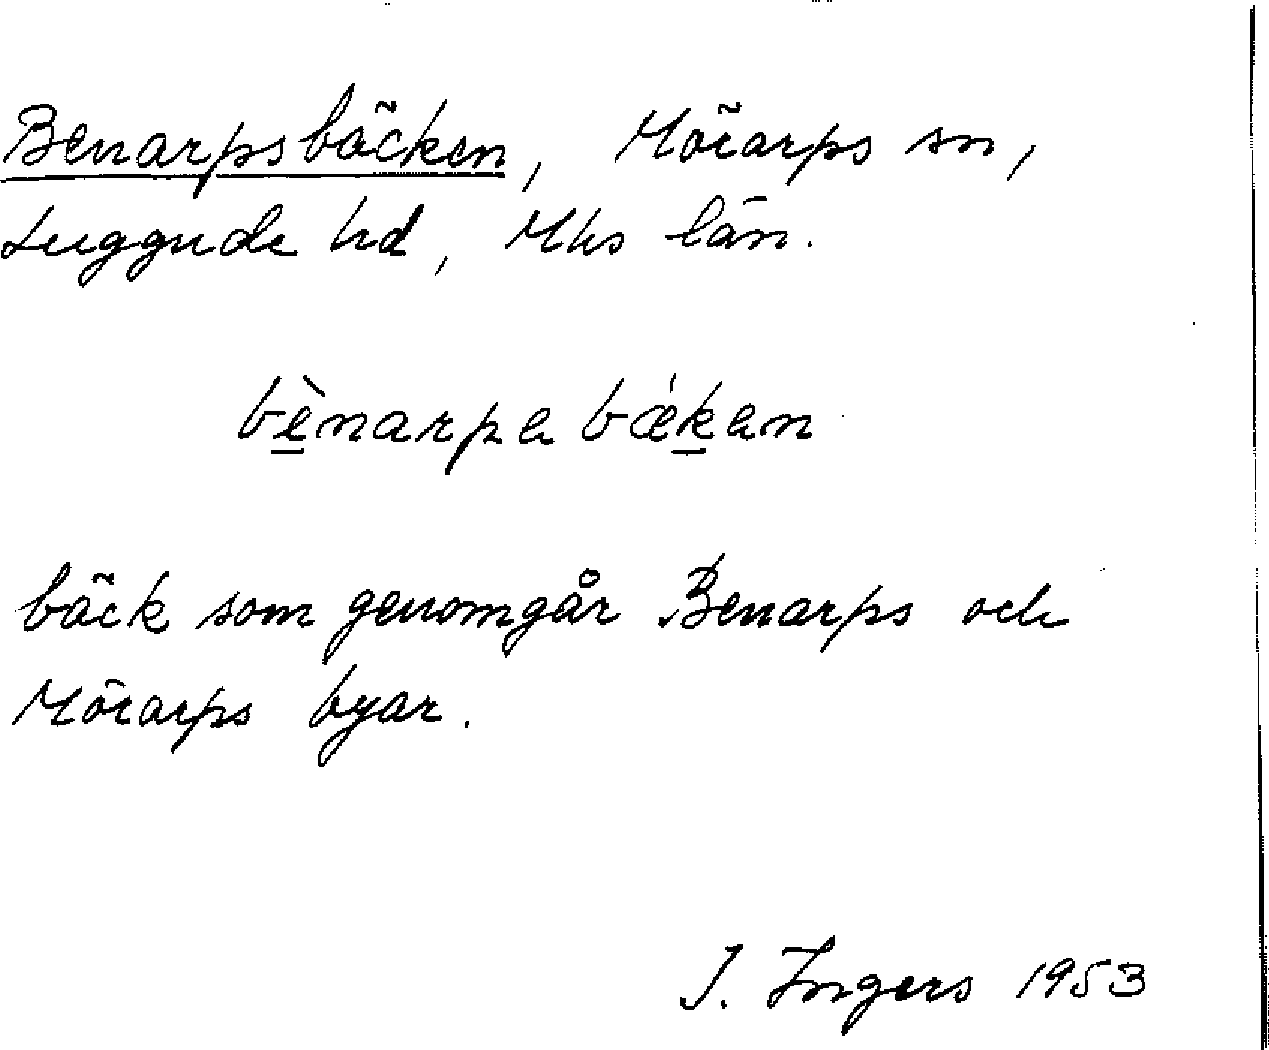 Benarpsbäcken, Mörarps sn,
Luggude hd, Mhs län.
bènarpa bǽkan
bäck som genomgår Benarps och
Mörarps byar.
I. Ingers 1953